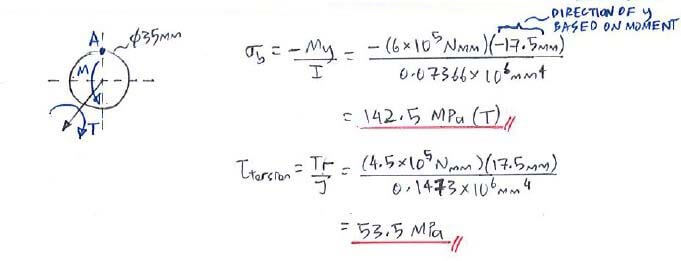 DIRECTION OF y
BASED ON MOMENT
A
φ35mm
M
T
σb = -My/I = -(6×10⁵Nmm)(-17.5mm)/0.07366×10⁶mm⁴
= 142.5 MPa (T)
τtorsion = Tr/J = (4.5×10⁵Nmm)(17.5mm)/0.1473×10⁶mm⁴
= 53.5 MPa